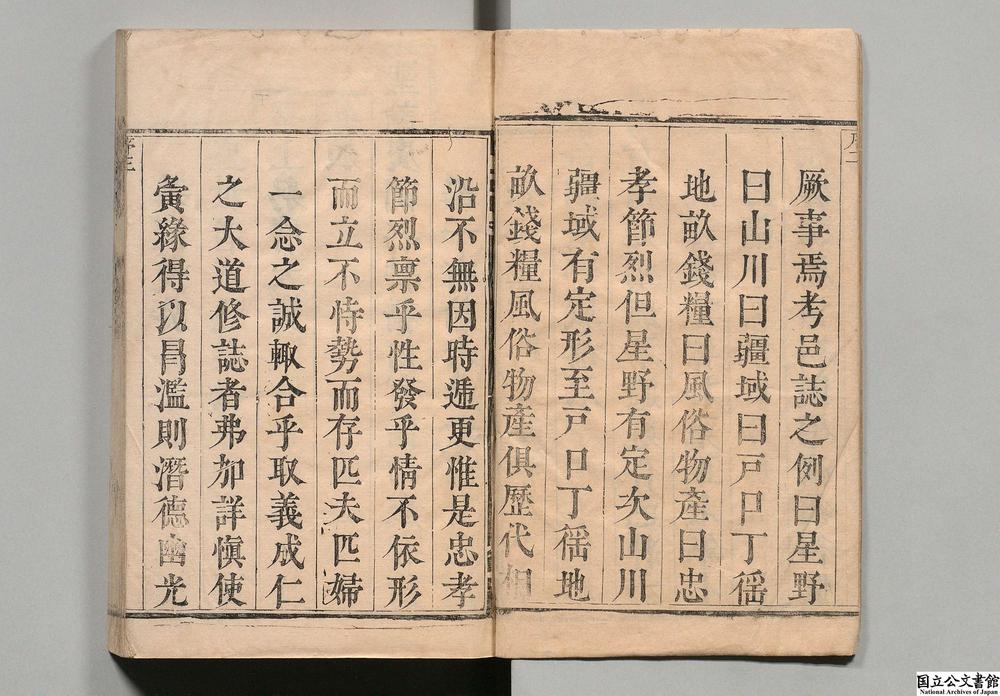 序二
厥事焉考邑誌之例曰星野
曰山川曰疆域曰戸口丁徭
地畝錢糧曰風俗物產曰忠
孝節烈但星野有定次山川
疆域有定形至戸口丁徭地
畝錢糧風俗物產俱歷代相
沿不無因時遞更惟是忠孝
節烈禀乎性發乎情不依形
而立不恃勢而存匹夫匹婦
一念之誠輙合乎取義成仁
之大道修誌者弗加詳慎使
夤緣得以冒濫則潛德幽光
序三
国立公文書館
National Archives of Japan